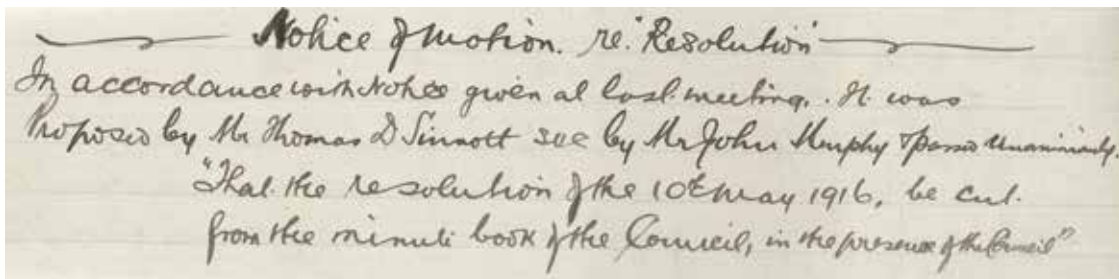 Notice of Motion. re "Resolution"
In accordance with Notice given at last meeting. It was
Proposed by Mr Thomas D Sinnott sec by Mr John Murphy & passed Unanimously.
"That the resolution of the 10th May 1916, be cut.
from the minute book of the Council, in the presence of the Council"